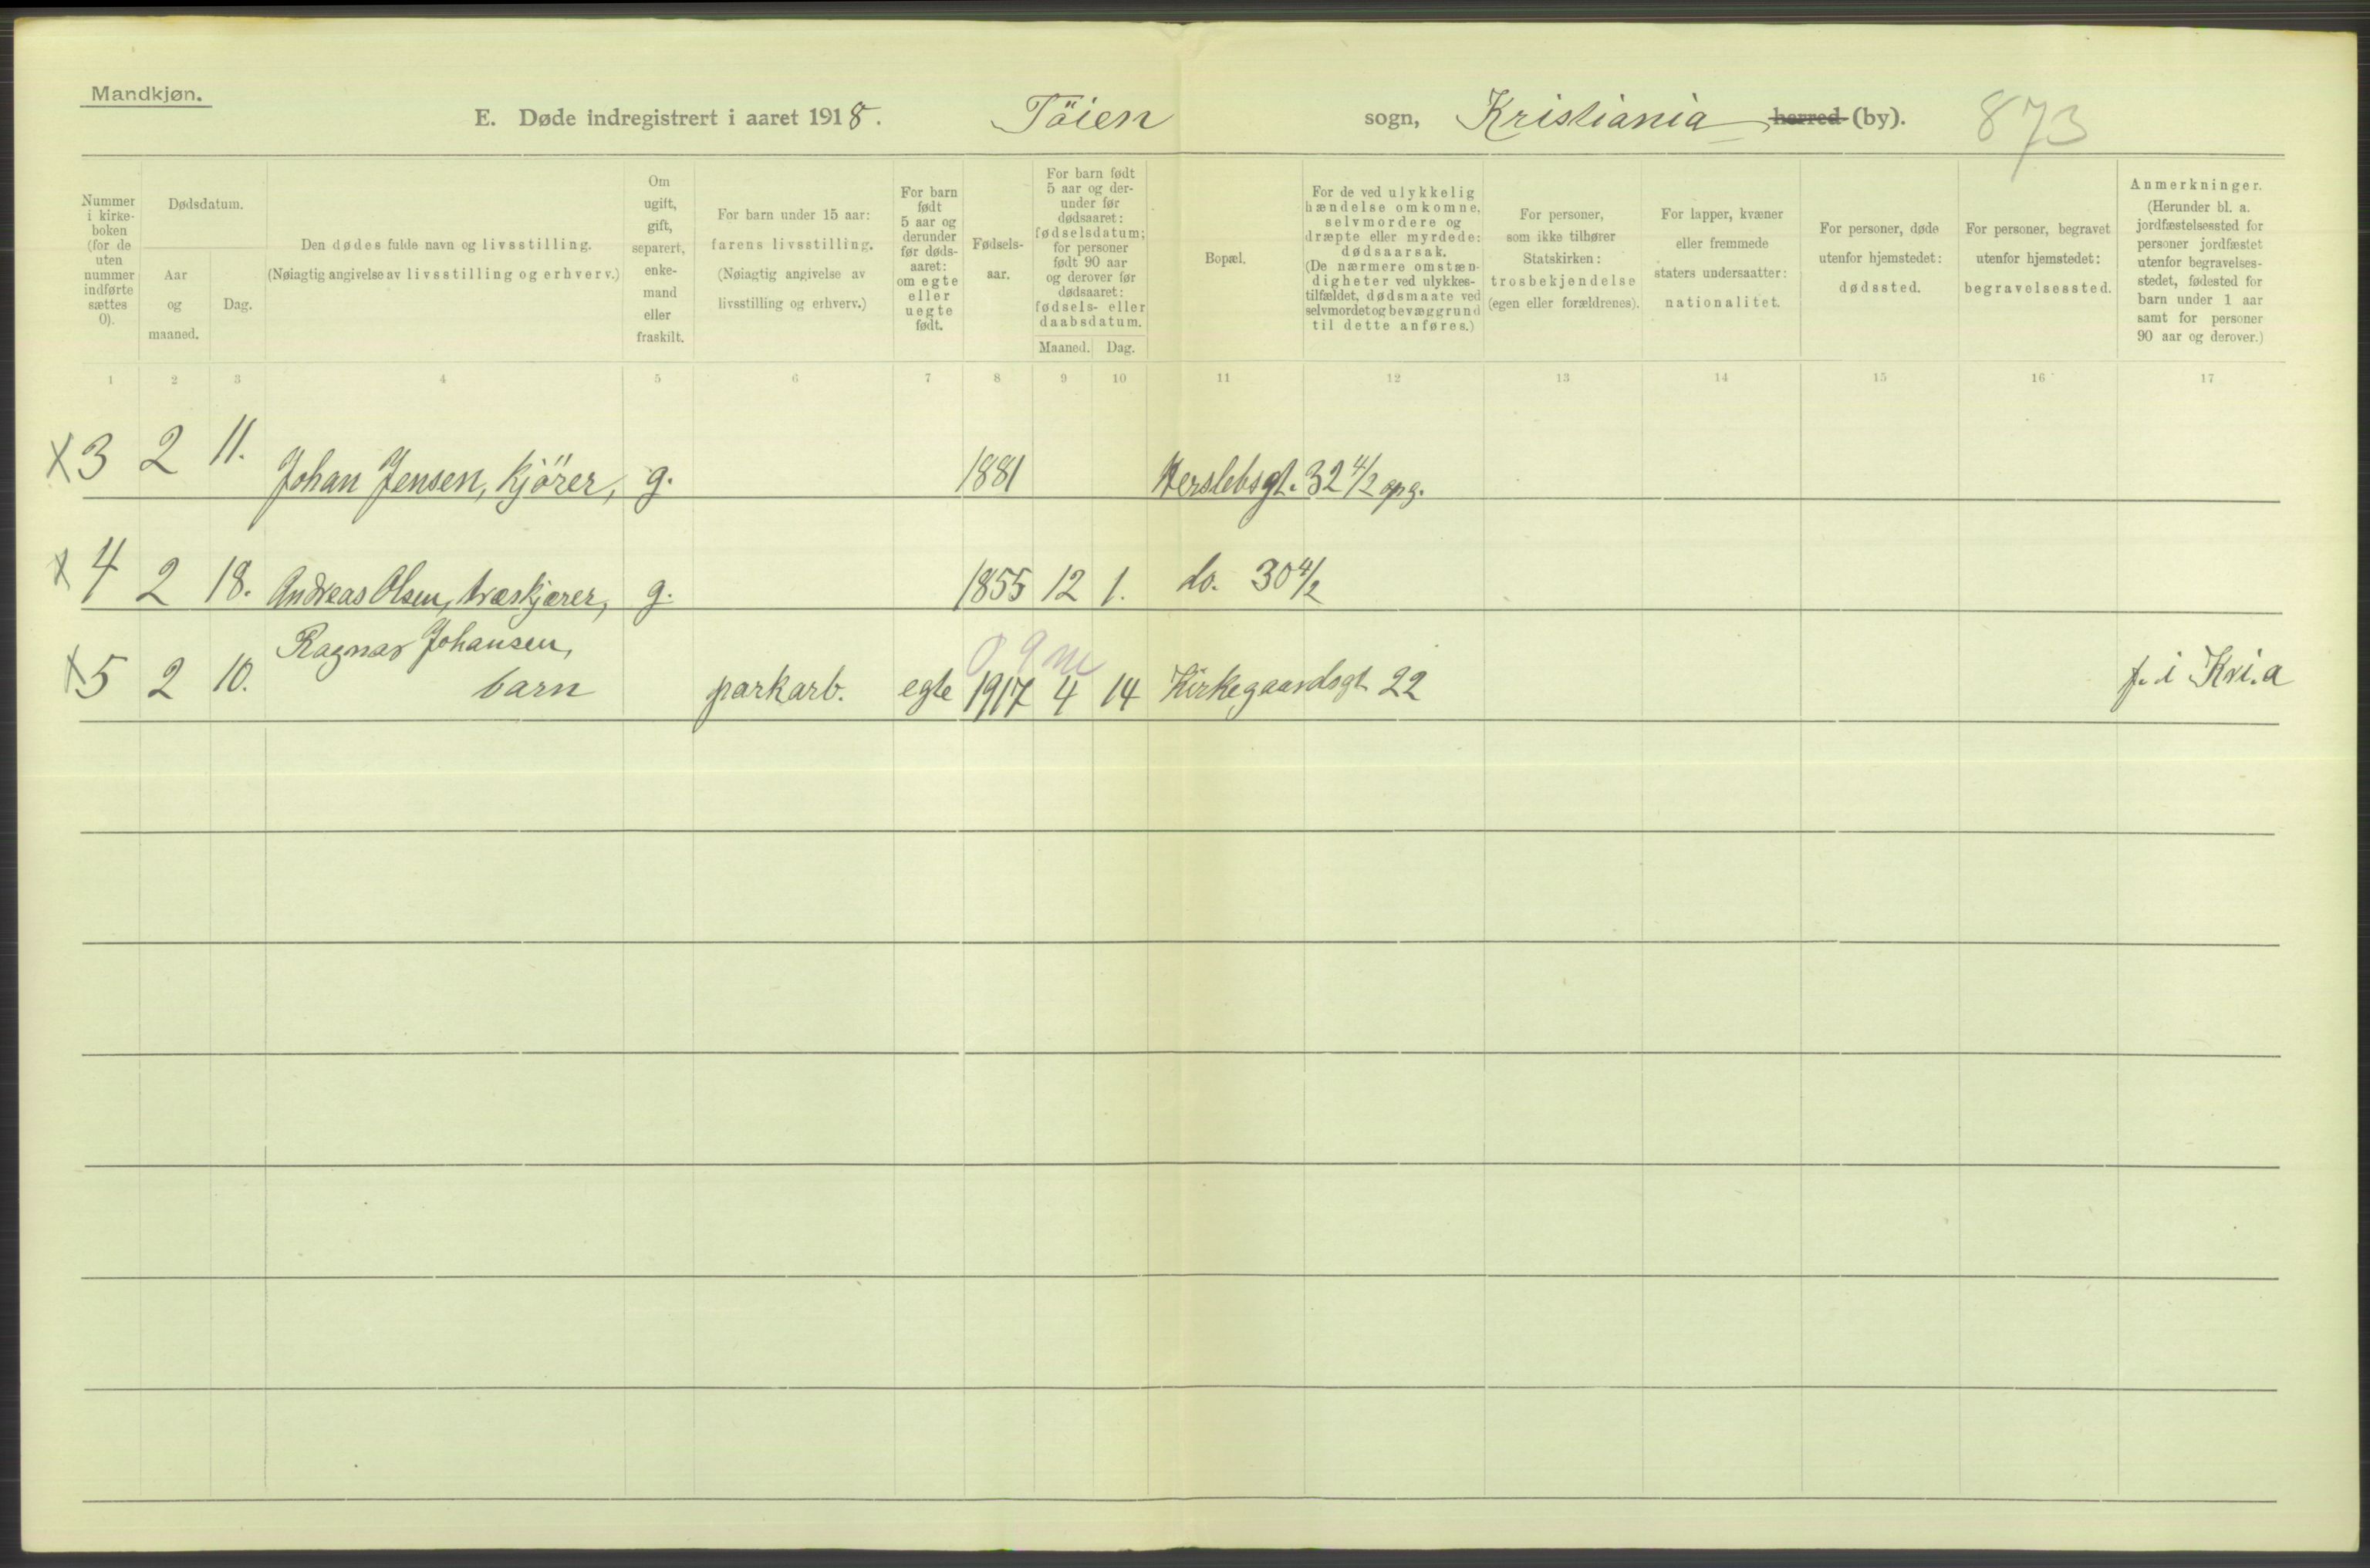 Mandkjøn.
E. Døde indregistrert i aaret 1918. Töien sogn, Kristiania herred (by). 873
Nummer i kirke-boken (for de uten nummer indførte sættes 0).
Dødsdatum.
Aar og maaned.
Dag.
Den dødes fulde navn og livsstilling.
(Nøiagtig angivelse av livsstilling og erhverv.)
Om ugift, gift, separert, enke-mand eller fraskilt.
For barn under 15 aar: farens livsstilling.
(Nøiagtig angivelse av livsstilling og erhverv.)
For barn født 5 aar og derunder før døds-aaret: om egte eller uegte født.
Fødsels-aar.
For barn født 5 aar og der-under før dødsaaret: fødselsdatum; for personer født 90 aar og derover før dødsaaret: fødsels- eller daabsdatum.
Maaned. Dag.
Bopæl.
For de ved ulykkelig hændelse omkomne, selvmordere og dræpte eller myrdede: dødsaarsak.
(De nærmere omstæn-digheter ved ulykkes-tilfældet, dødsmaate ved selvmordet og bevæggrund til dette anføres.)
For personer, som ikke tilhører Statskirken: trosbekjendelse (egen eller forældrenes).
For lapper, kvæner eller fremmede staters undersaatter: nationalitet.
For personer, døde utenfor hjemstedet: dødssted.
For personer, begravet utenfor hjemstedet: begravelsessted.
Anmerkninger.
(Herunder bl. a. jordfæstelsessted for personer jordfæstet utenfor begravelses-stedet, fødested for barn under 1 aar samt for personer 90 aar og derover.)
1 2 3 4 5 6 7 8 9 10 11 12 13 14 15 16 17
X 3 2 11. Johan Jensen, kjörer, g. 1881 Herslebsgt. 32 4/2 opg.
X 4 2 18. Andreas Olsen, træskjærer, g. 1855 12 1. do. 30 4/2
Ragnar Johansen, 0 9 m
X 5 2 10. barn parkarb. egte 1917 4 14 Kirkegaardsgt 22 f. i Kri.a